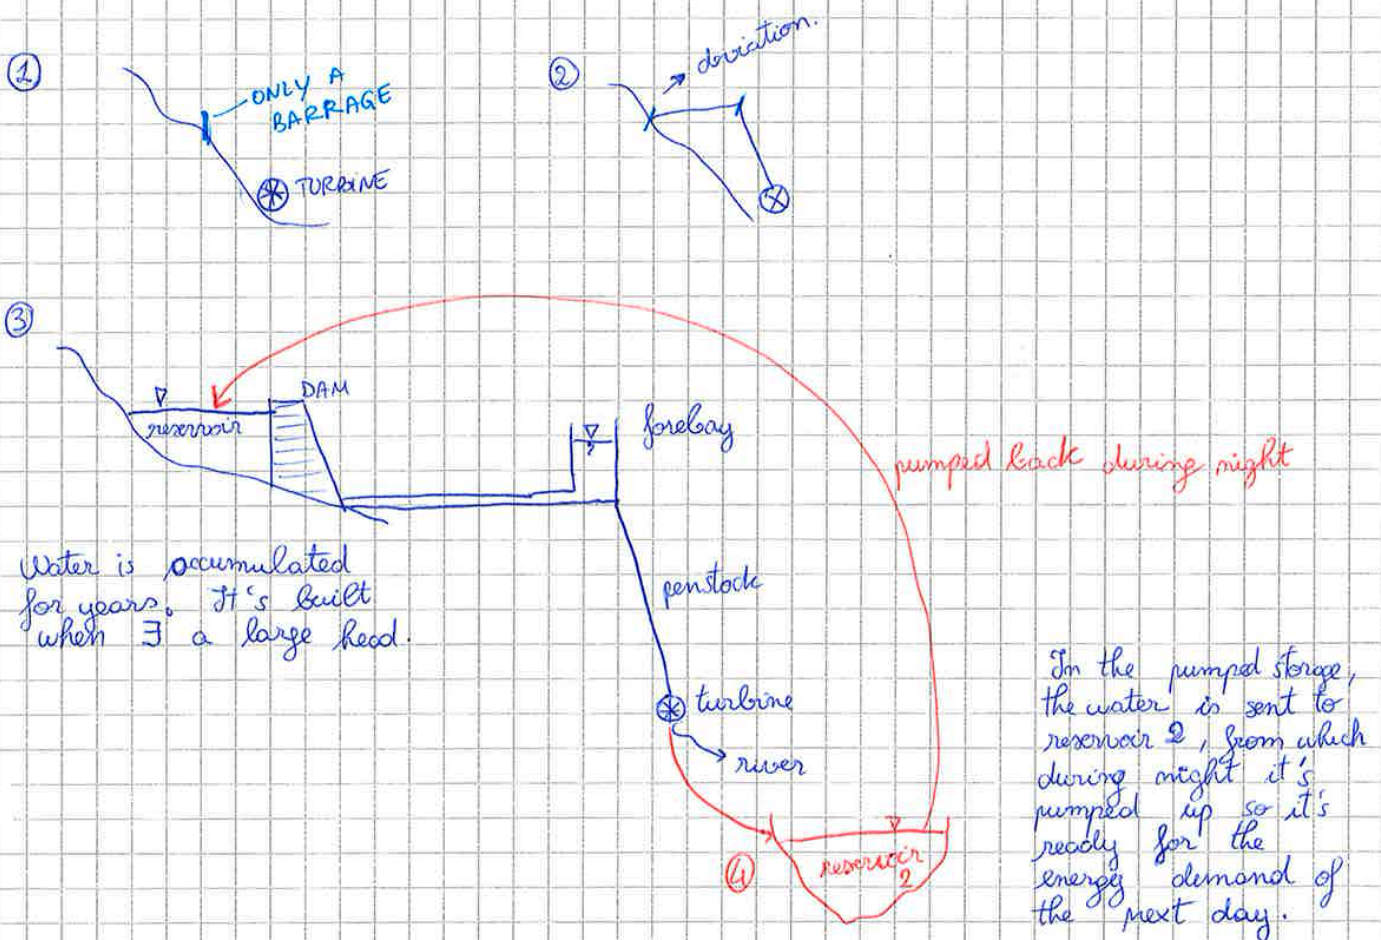 ①
ONLY A
BARRAGE
TURBINE
②
deviation.
③
DAM
reservoir
forebay
pumped back during night
Water is accumulated
for years. It's built
when ∃ a large head.
penstock
turbine
river
④
reservoir
2
In the pumped storage,
the water is sent to
reservoir 2, from which
during night it's
pumped up so it's
ready for the
energy demand of
the next day.